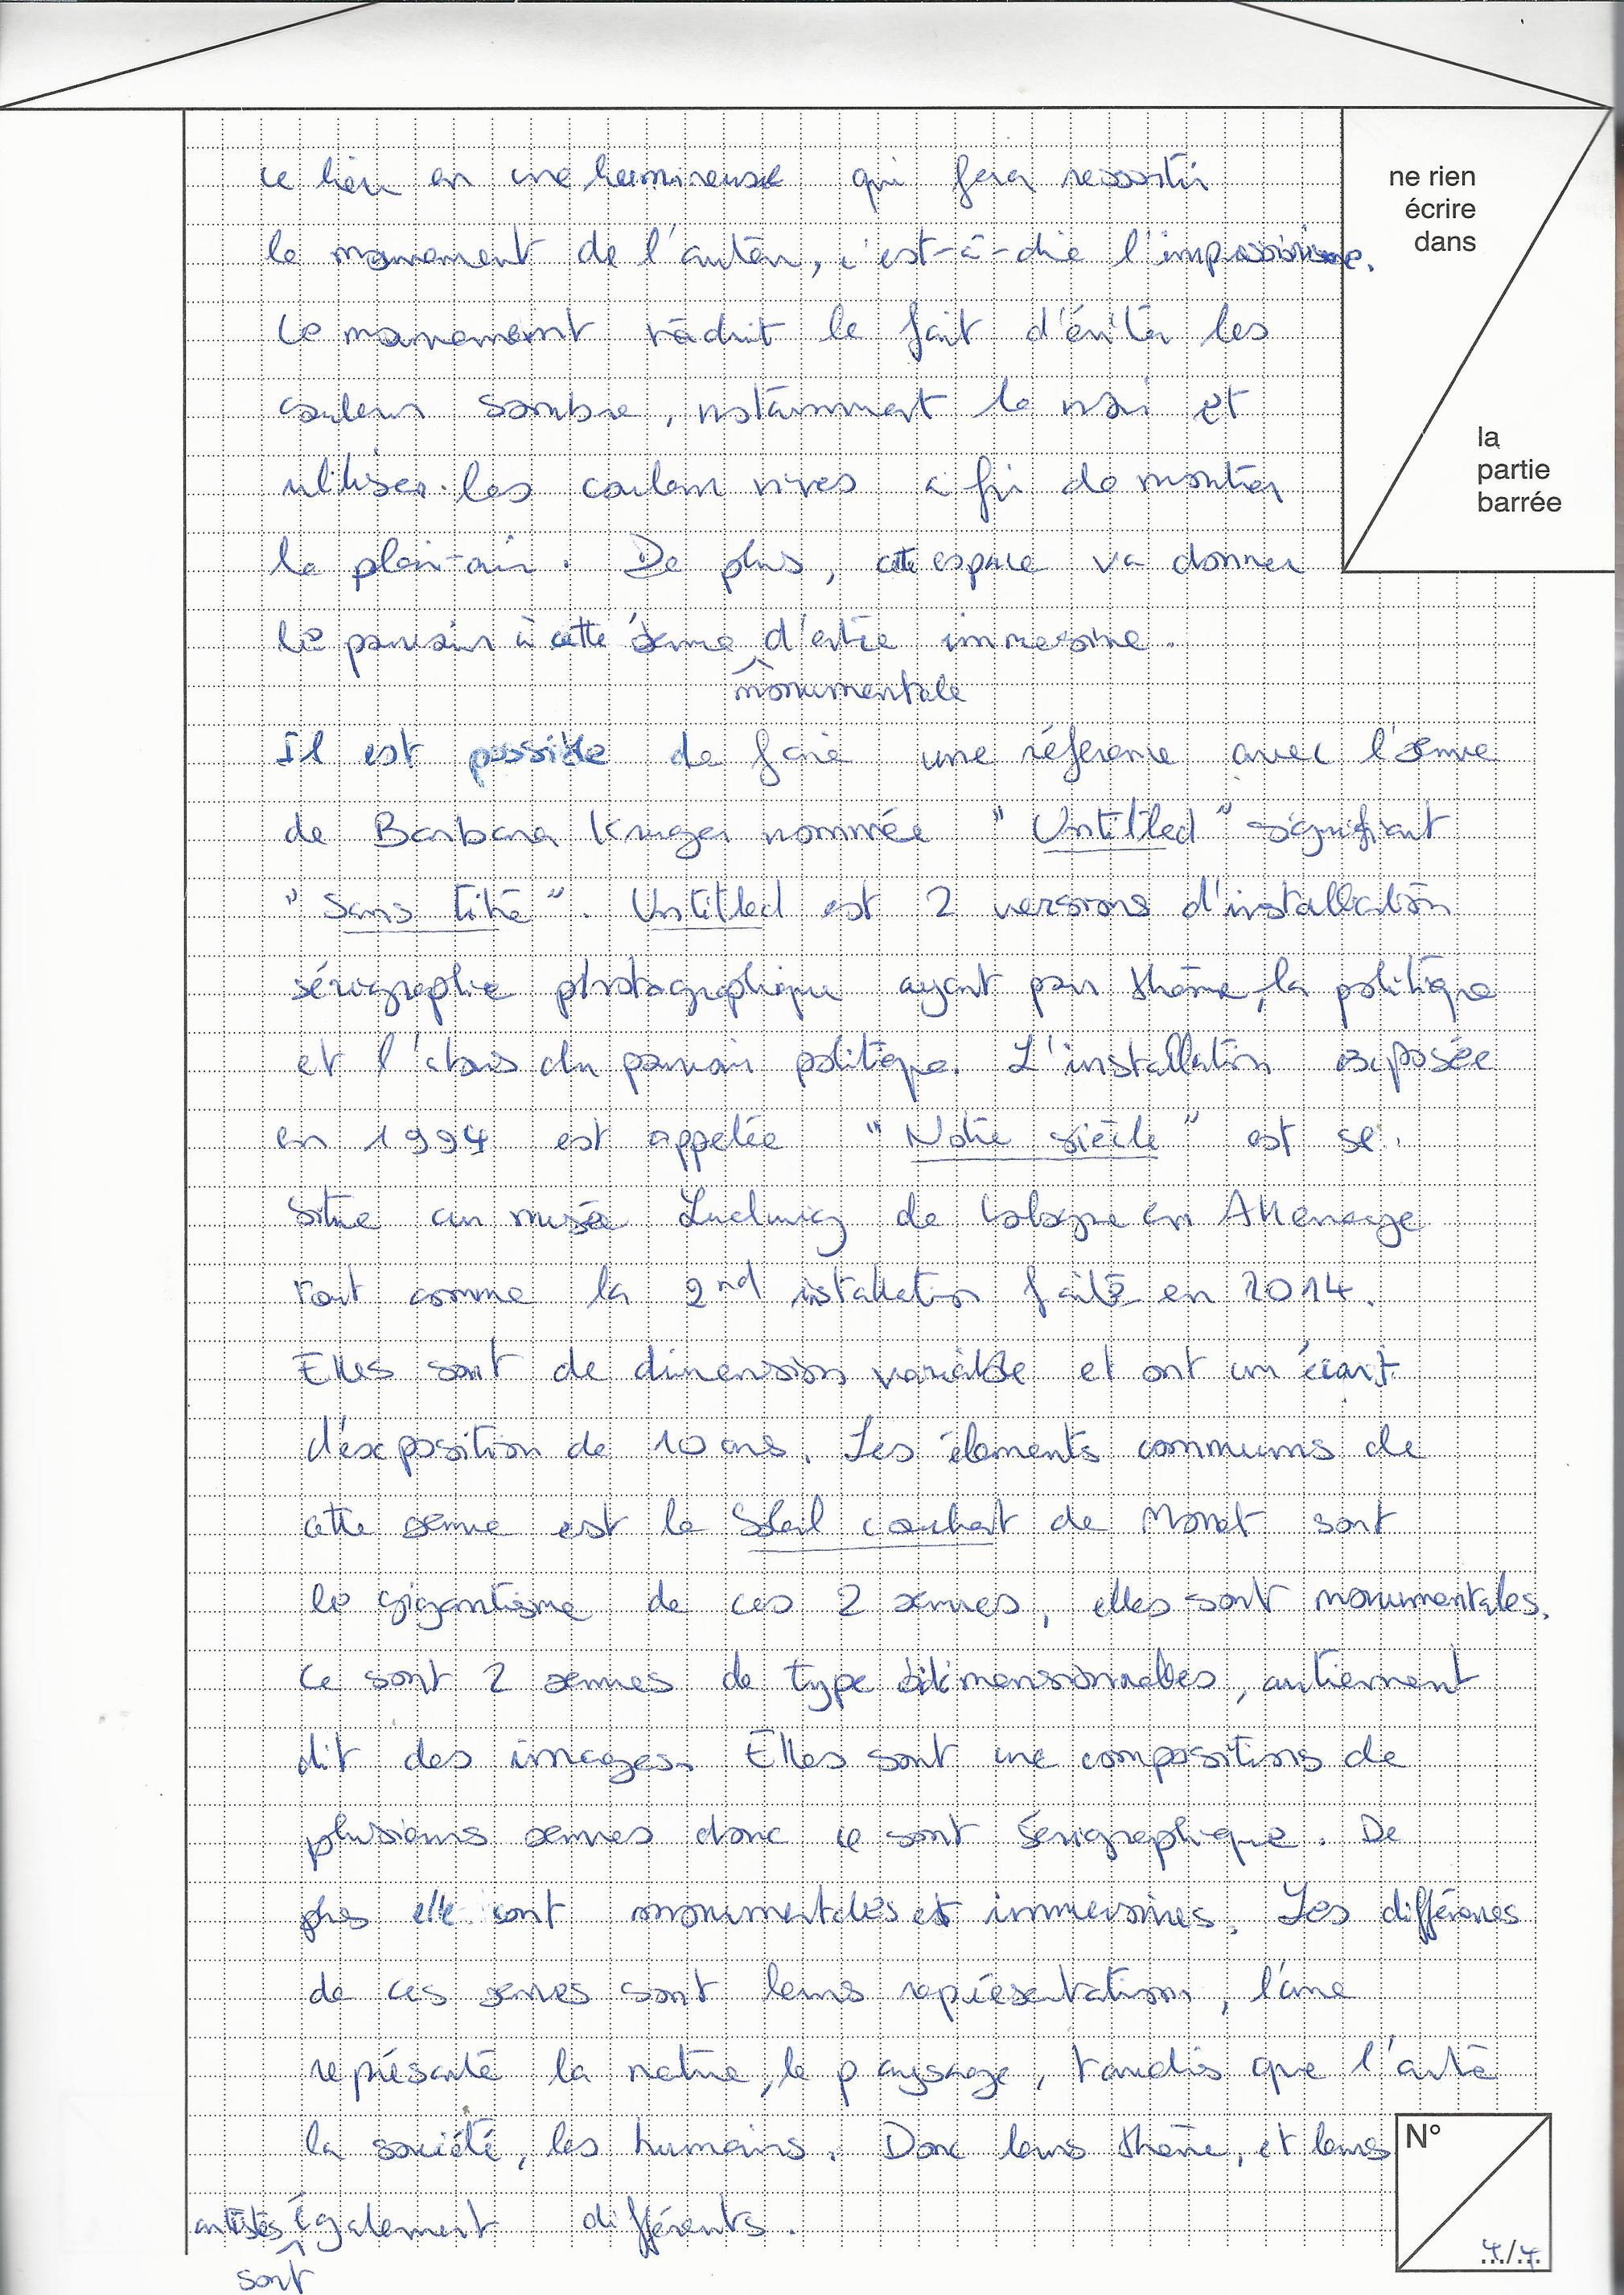 ne rien
écrire
dans
la
partie
barrée
ce lieu en une lumineuse qui fera ressortir
le mouvement de l'auteur, c'est-à-dire l'impressionisme.
Ce mouvement traduit le fait d'éviter les
couleurs sombre, notamment le noir et
utiliser les couleur vives afin de montrer
le plein-air. De plus, cette espace va donner
le pouvoir à cette œuvre d'être immersive.
monumentale
Il est possible de faire une référence avec l'œuvre
de Barbara Kruger nommée "Untitled" signifiant
"Sans titre". Untitled est 2 versions d'installation
sérigraphie photographique ayant pour thème, la politique
et l'abus du pouvoir politique. L'installation exposée
en 1994 est appelée "Notre siècle" est se
situe au musée Ludwig de Cologne en Allemagne
tout comme la 2nd installation faite en 2014.
Elles sont de dimension variable et ont un écart
d'exposition de 10 ans. Les élements communs de
cette œuvre est le Soleil couchant de Monet sont
le gigantisme de ces 2 œuvres, elles sont monumentales.
Ce sont 2 œuvres de type bidimensionnelles, autrement
dit des images. Elles sont une compositions de
plusieurs œuvres donc ce sont sérigraphique. De
plus elle sont monumentales et immersives. Les différences
de ces œuvres sont leurs représentation, l'une
représente la nature, le paysage, tandis que l'autre
la société, les humains. Donc leurs thème, et leurs
artistes également différents.
sont
N°
4/4